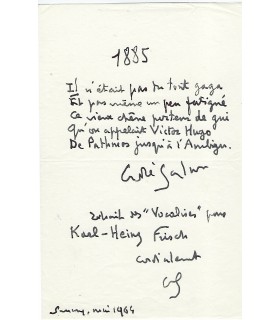 1885
Il n'était pas du tout gaga
Et pas même un peu fatigué
Ce vieux chêne porteur de gui
Qu'on appelait Victor Hugo
De Pathmos jusqu'à l'Ambigu.
André Salmon
extrait des "Vocalises" pour
Karl-Heinz Frisch
cordialement
AS
mai 1964